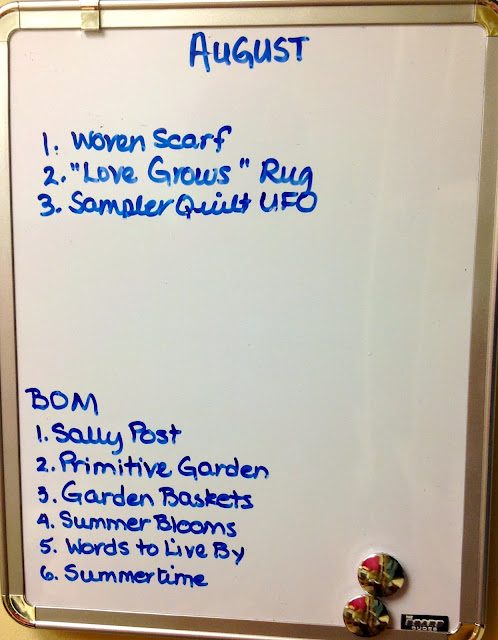 AUGUST
1. Woven Scarf
2. "Love Grows" Rug
3. Sampler Quilt UFO
BOM
1. Sally Post
2. Primitive Garden
3. Garden Baskets
4. Summer Blooms
5. Words to Live By
6. Summertime